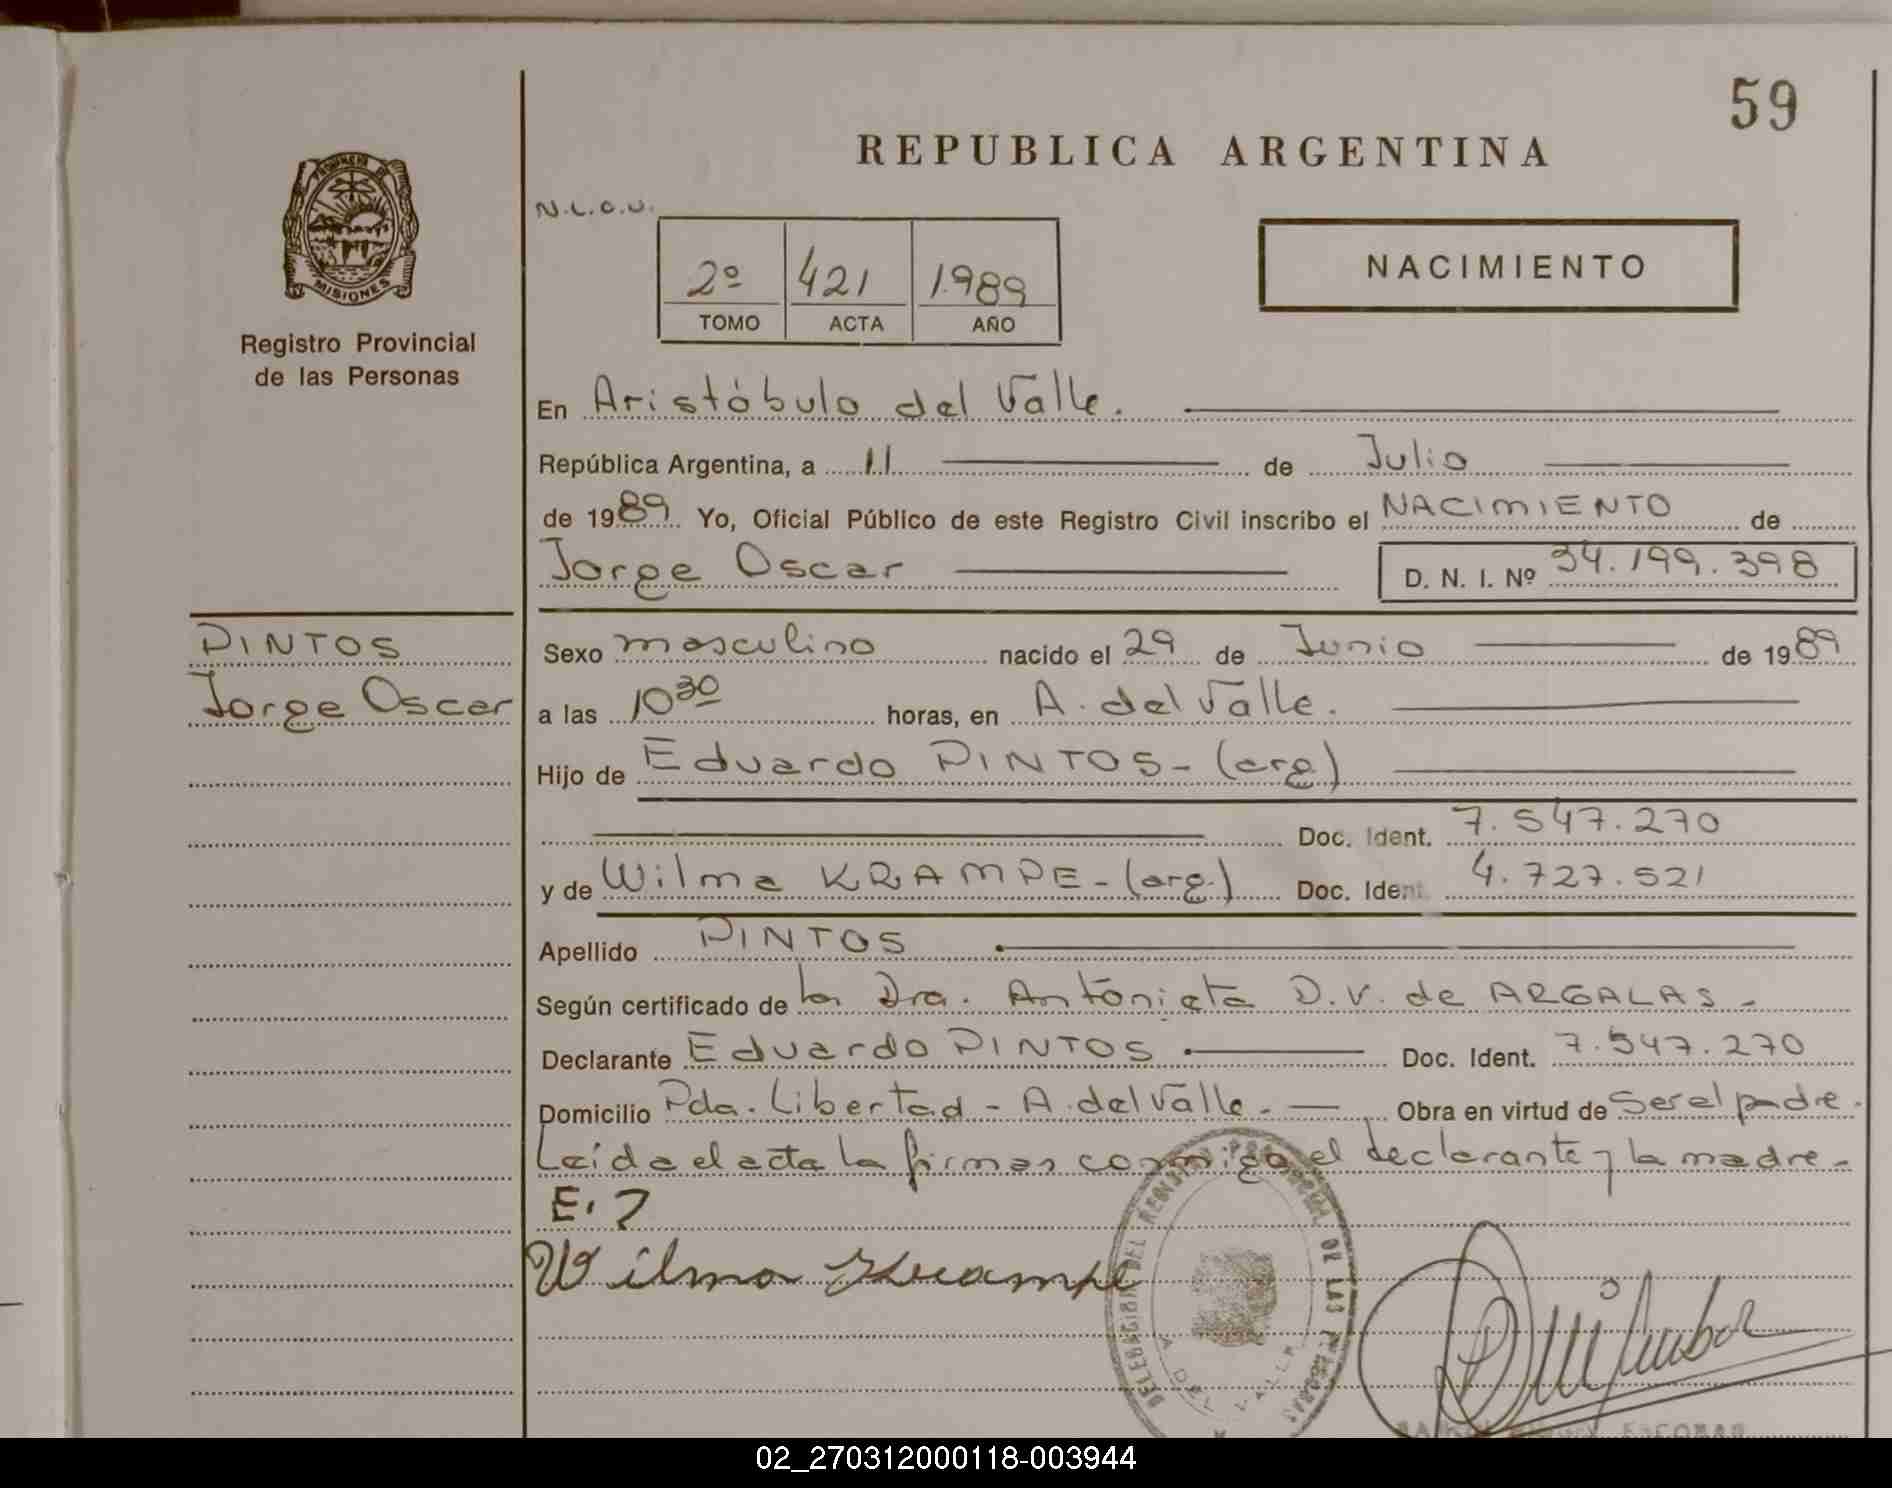 59
REPUBLICA ARGENTINA
PROVINCIA DE
MISIONES
Registro Provincial
de las Personas
N.L.O.U.
2º 421 1.989
TOMO ACTA AÑO
NACIMIENTO
En Aristóbulo del Valle.
República Argentina, a 11 de Julio
de 1989 Yo, Oficial Público de este Registro Civil inscribo el NACIMIENTO de
Jorge Oscar D. N. I. Nº 34.199.398
PINTOS
Jorge Oscar
Sexo masculino nacido el 29 de Junio de 1989
a las 10 30 horas, en A. del Valle.
Hijo de Eduardo PINTOS - (arg)
Doc. Ident. 7.547.270
y de Wilma KRAMPE - (arg.) Doc. Ident. 4.727.521
Apellido PINTOS
Según certificado de la Dra. Antonieta D.V. de ARGALAS -
Declarante Eduardo PINTOS Doc. Ident. 7.547.270
Domicilio Pda. Libertad - A. del Valle. - Obra en virtud de Ser el padre.
Leída el acta la firman conmigo el declarante y la madre -
E.
Wilma Krampe
DELEGACION DEL REGISTRO PROVINCIAL DE LAS PERSONAS
A. DEL VALLE
ESCOBAR
02_270312000118-003944